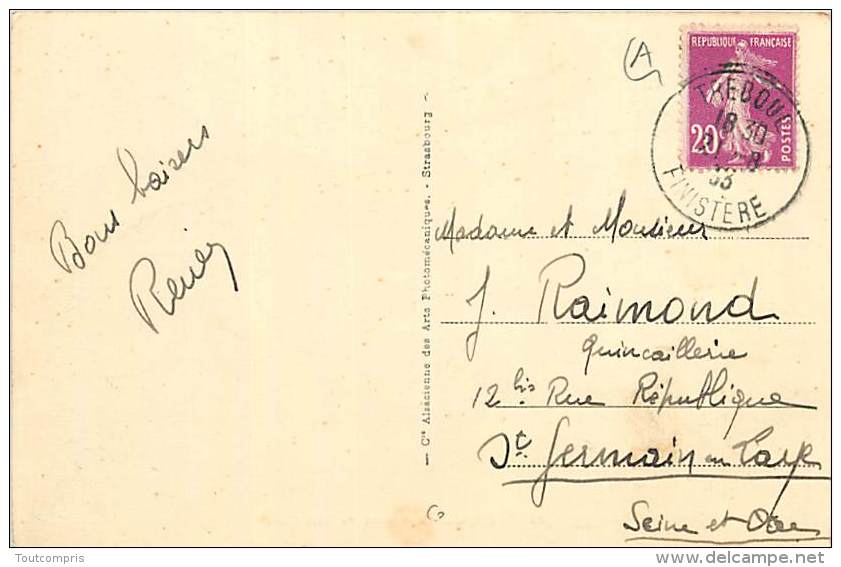 Bons baisers
Renée
Cie Alsacienne des Arts Photomécaniques. - Strasbourg
A
REPUBLIQUE FRANÇAISE
20c
POSTES
TREBOUL
18 30
8
33
FINISTERE
Madame et Monsieur
J. Raimond
Quincaillerie
12 bis Rue République
St Germain en Laye
Seine et Oise
Toutcompris
www.delcampe.net